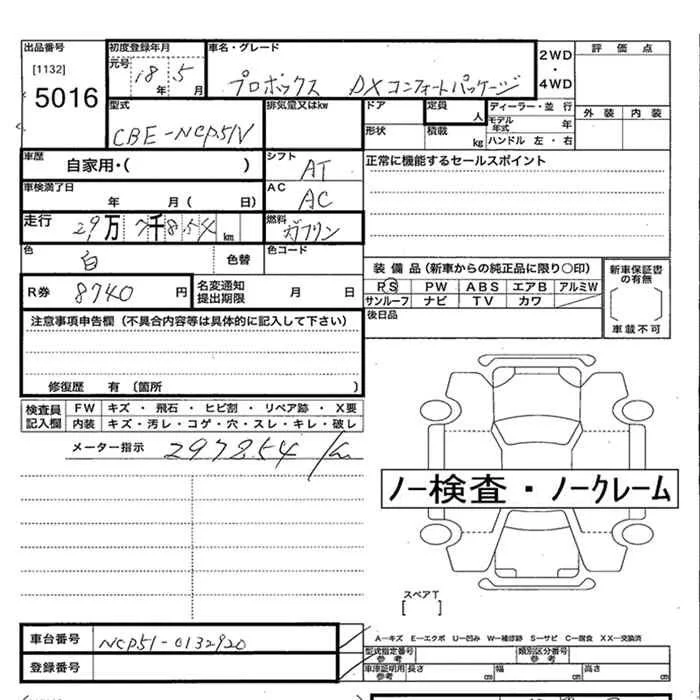 出品番号 初度登録年月 車名・グレード 2WD・4WD 評価点
[1132] 元号 18年 5月 プロボックス DXコンフォートパッケージ
5016 外装 内装
型式 排気量又はkw ドア 定員 人 ディーラー・並 行
CBE-NCP51V 形状 積載 kg モデル年式 年
ハンドル 左・右
車歴 自家用・( ) シフト AT 正常に機能するセールスポイント
車検満了日 年 月( 日) AC AC
走行 29万 7千854 km 燃料 ガソリン
色 白 色替 色コード
装備品(新車からの純正品に限り○印) 新車保証書の有無
R券 8740円 名変通知提出期限 月 日 PS PW ABS エアB アルミW
サンルーフ ナビ TV カワ
注意事項申告欄(不具合内容等は具体的に記入して下さい) 後日品 車載不可
修復歴 有 〔箇所 〕
検査員記入欄 FW キズ・飛石・ヒビ割・リペア跡・X要
内装 キズ・汚レ・コゲ・穴・スレ・キレ・破レ
メーター指示 297854 km
ノー検査・ノークレーム
スペアT
[ ]
車台番号 NCP51-0132920 A−キズ E−エクボ U−凹み W−補修跡 S−サビ C−腐食 XX−交換済
型式指定番号 参考 類別区分番号 参考
登録番号 車庫証明用 参考 長さ cm 幅 cm 高さ cm